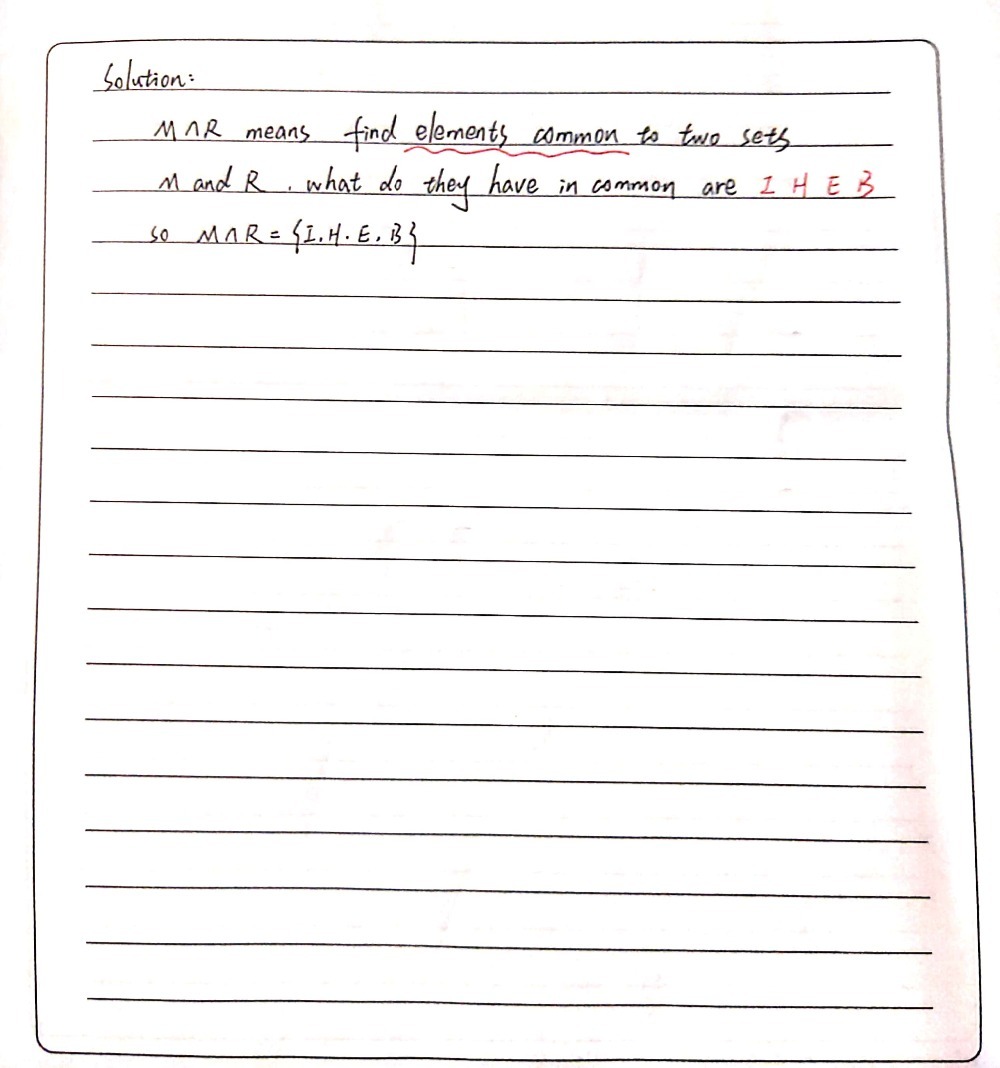 Solution:
M∩R means find elements common to two sets
M and R . what do they have in common are I H E B
so M∩R = {I.H.E.B}